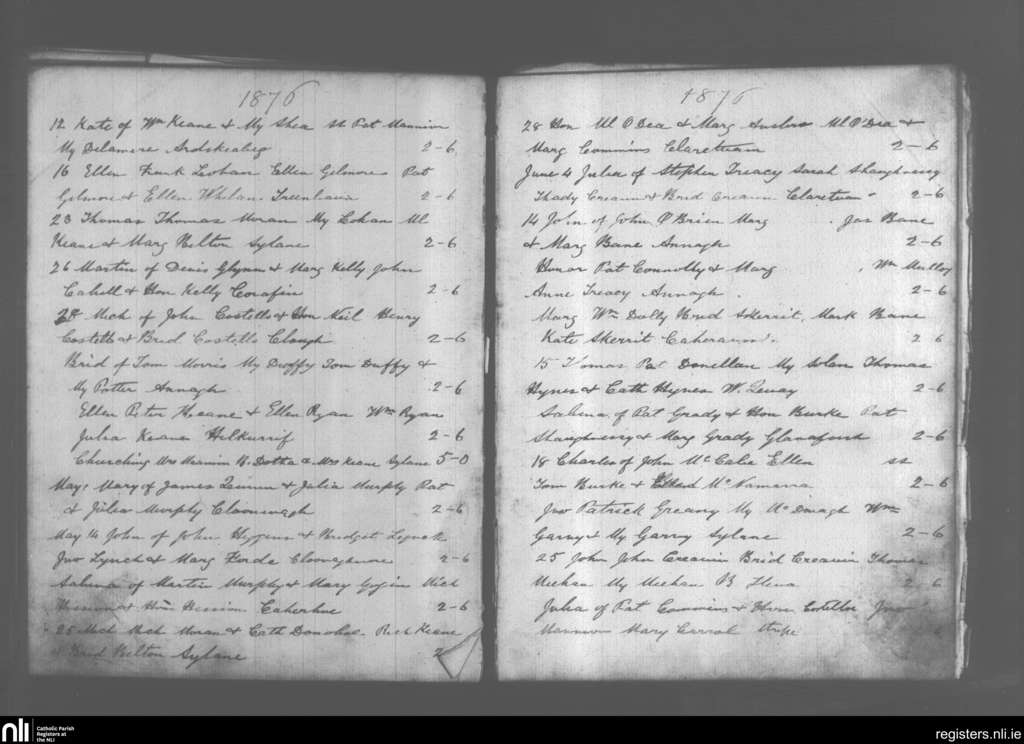 1876
12 Kate of Wm Keane & My Shea st Pat Mannion
My Delamere Ardskeabeg 2-6
16 Ellen Frank Lohan Ellen Gilmore Pat
Gilmore & Ellen Whelan 2-6
23 Thomas Thomas Moran My Lohan Ml
Keane & Marg Belton Sylane 2-6
26 Martin of Denis Glynn & Marg Kelly John
Cahill & Hon Kelly Corofin 2-6
28 Mich of John Costello & Hon Neil Henry
Costello & Brid Costello Clough 2-6
Brid of Tom Morris My Duffy Tom Duffy &
My Potter Annagh 2-6
Ellen Peter Keane & Ellen Ryan Wm Ryan
Julia Keane 2-6
Churching Mrs Mannion & Mrs Keane Sylane 5-0
May: Mary of James & Julia Murphy Pat
& Julia Murphy 2-6
May 14 John of John Higgins & Bridget Lynch
Jno Lynch & Marg Forde Cloonaghmore 2-6
Sabina of Martin Murphy & Mary Gogins Mich
Hession & Hon Hession 2-6
25 Mich Mich Moran & Cath Donohoe Rich Keane
& Brid Belton Sylane 2
1876
28 Hon Ml O Dea & Marg Ml O Dea &
Marg Commins Claretuam 2-6
June 4 Julia of Stephen Treacy Sarah Shaughnessy
Thady Creavin & Brid Creavin Claretuam 2-6
14 John of John O'Brien Marg Jas Bane
& Marg Bane Annagh 2-6
Honor Pat Connolly & Marg Wm Mulloy
Anne Treacy Annagh 2-6
Marg Wm Dolly Brid Skerrit Mark Bane
Kate Skerrit 2 6
15 Thomas Pat Donellan My Thomas
Hynes & Cath Hynes 2-6
Sabina of Pat Grady & Hon Burke Pat
Shaughnessy & Marg Grady 2-6
18 Charles of John McCabe Ellen st
Tom Burke & McNamara 2-6
Jno Patrick Greany My McDonagh Wm
Garvy & My Garvy Sylane 2-6
25 John John Creavin Brid Creavin Thomas
Meehan My Meehan 2 6
Julia of Pat Commins & Hon Costello Jno
Mannion Mary Carrol
nli
Catholic Parish
Registers at
the NLI
registers.nli.ie